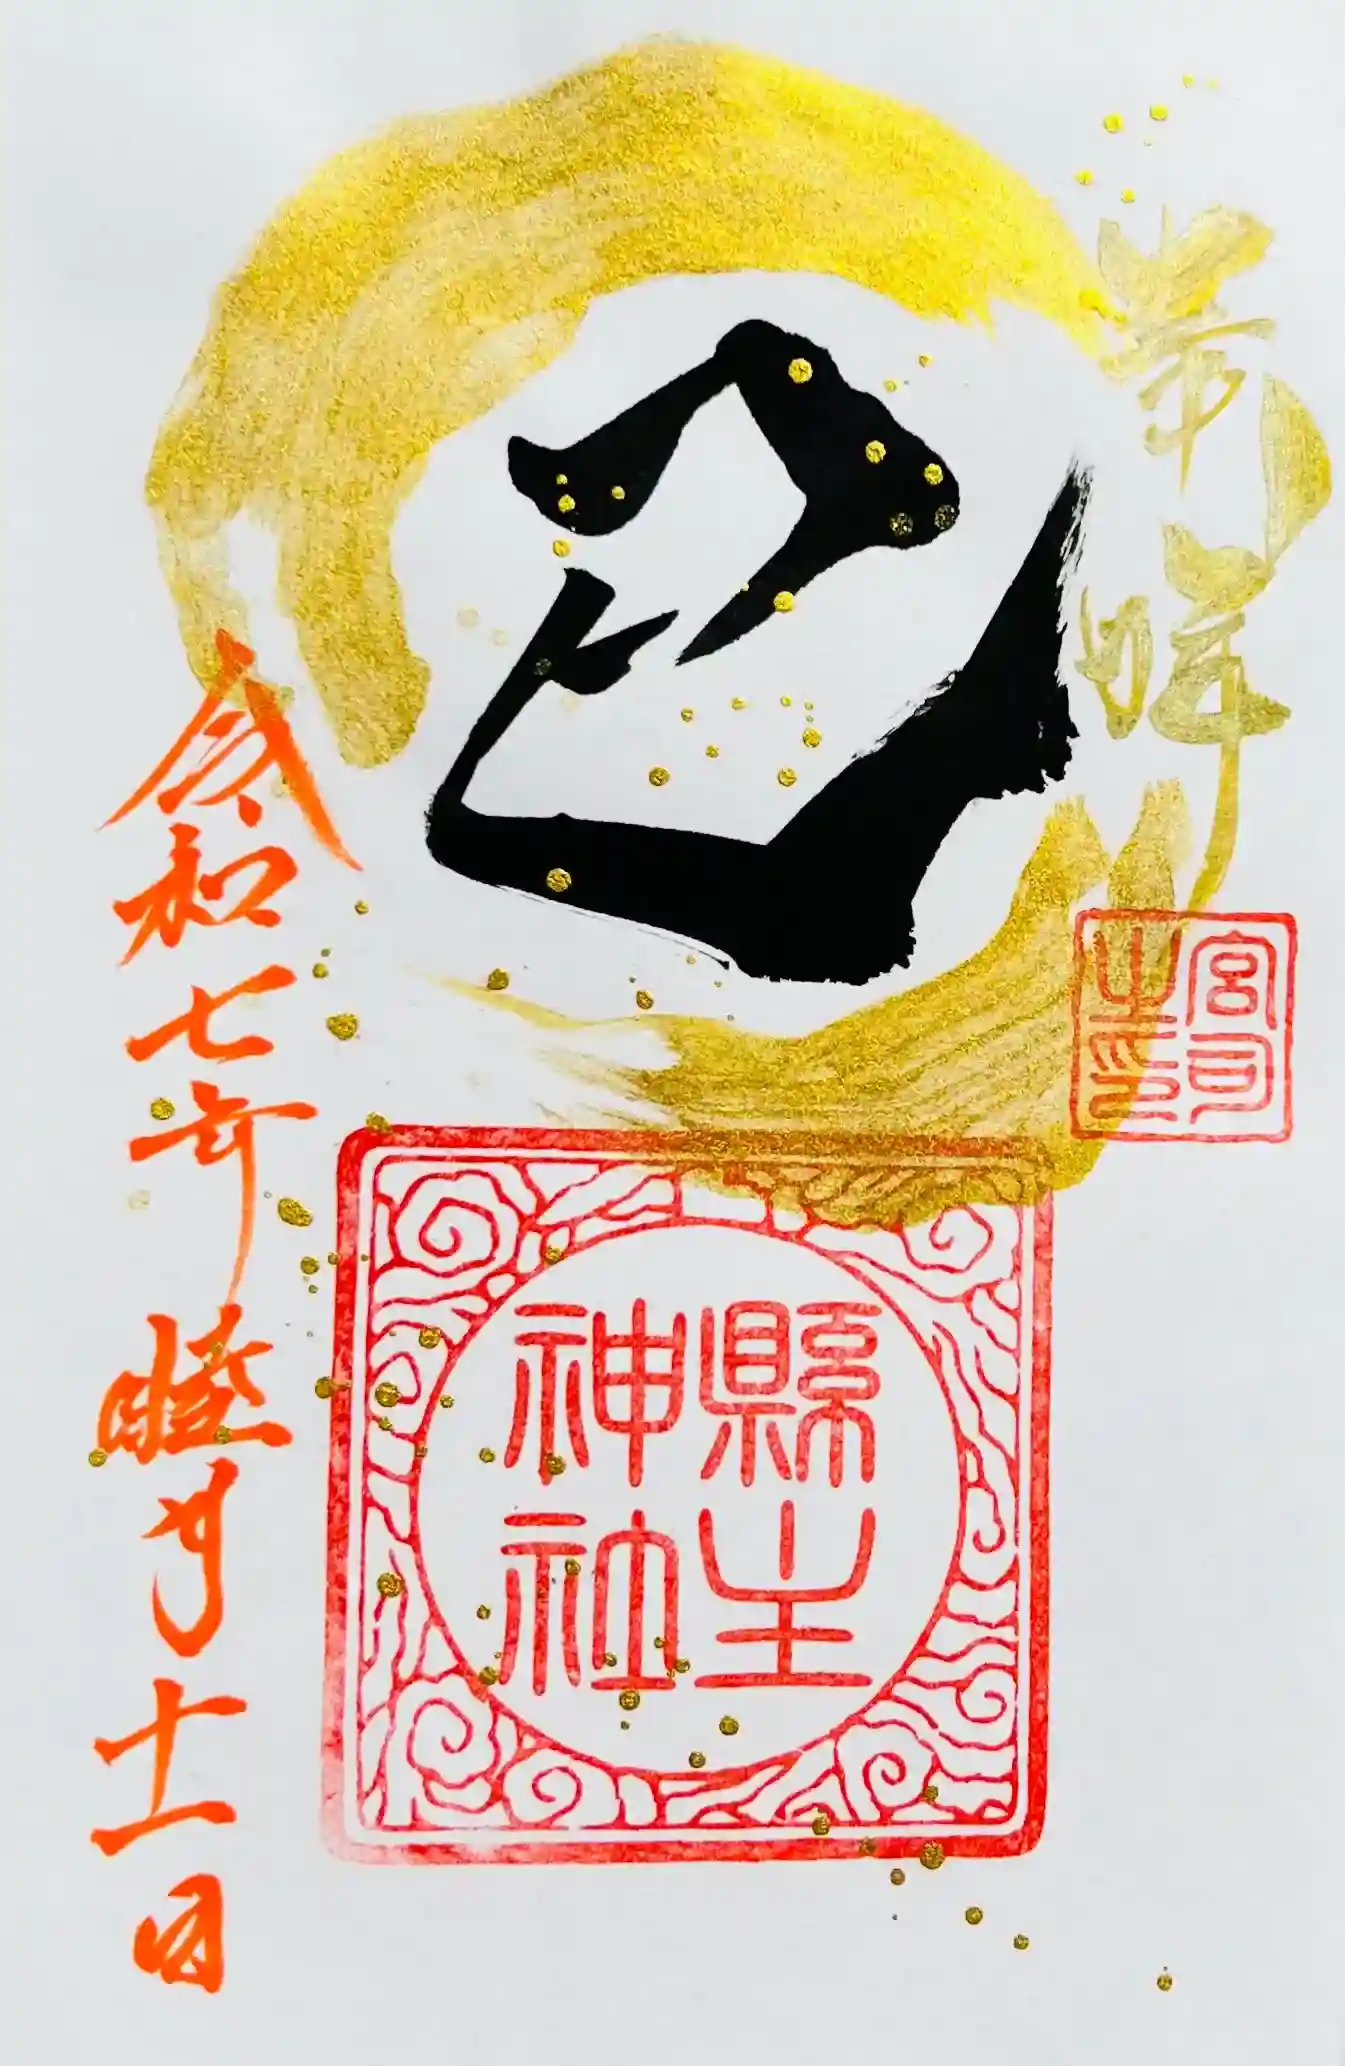 宮司之印
巳
縣主
神社
令和七年睦月十一日